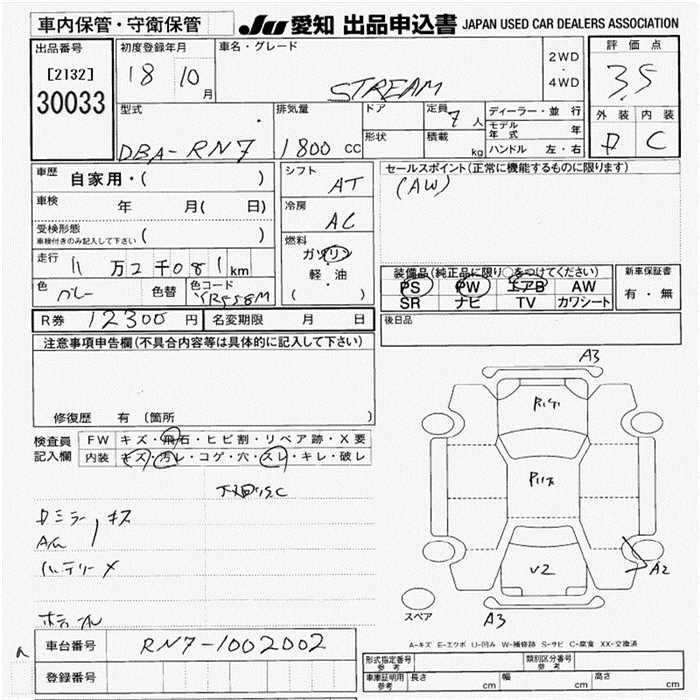 車内保管・守衛保管
JU 愛知 出品申込書 JAPAN USED CAR DEALERS ASSOCIATION
出品番号
[2132]
30033
初度登録年月
18 10 月
車名・グレード
STREAM
2WD
・
4WD
評価点
3.5
外装 内装
D C
型式
DBA-RN7
排気量
1800 CC
ドア
形状
定員
7 人
積載
kg
ディーラー・並行
モデル年式 年
ハンドル 左・右
車歴
自家用・( )
車検
年 月( 日)
受検形態
車検付きのみ記入して下さい ( )
走行
11 万 2 千 081 km
色
グレー
色替
色コード
YR558M
シフト
AT
冷房
AC
燃料
ガソリン
・
軽・油
( )
セールスポイント(正常に機能するものに限ります)
(AW)
装備品(純正品に限り○をつけてください)
PS PW エアB AW
SR ナビ TV カワシート
新車保証書
有・無
後日品
R券 12300 円
名変期限 月 日
注意事項申告欄(不具合内容等は具体的に記入して下さい)
修復歴 有 (箇所 )
検査員
記入欄
FW キズ・飛石・ヒビ割・リペア跡・X要
内装 キズ・汚レ・コゲ・穴・スレ・キレ・破レ
下廻りS,C
Dミラー キズ
バッテリー X
A3
V2
A2
A3
スペア
A-キズ E-エクボ U-凹み W-補修跡 S-サビ C-腐食 XX-交換済
車台番号
RN7-1002002
登録番号
形式指定番号
参考
類別区分番号
参考
車庫証明用
参考
長さ cm
幅 cm
高さ cm